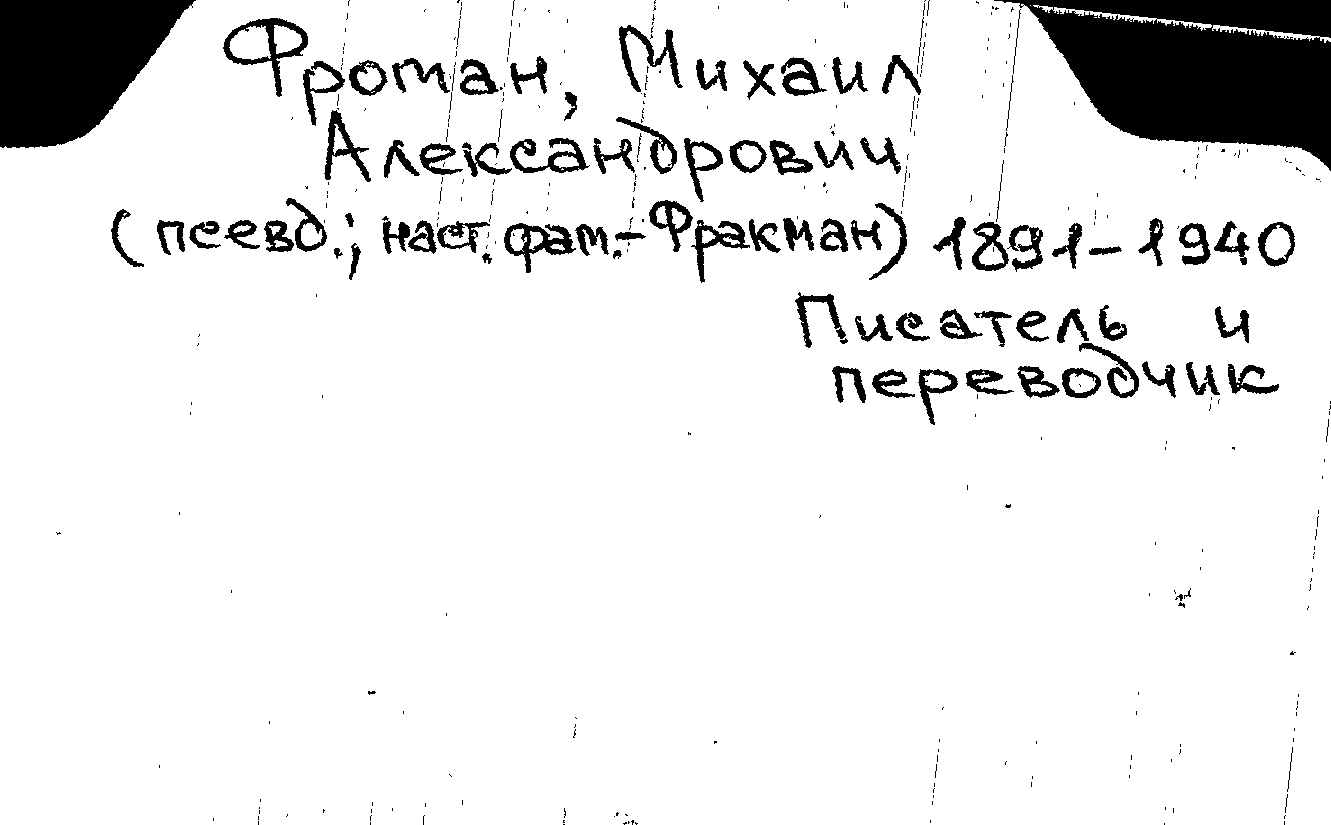 Фроман, Михаил
Александрович
(псевд.; наст. фам.-Фракман) 1891-1940
Писатель и
переводчик